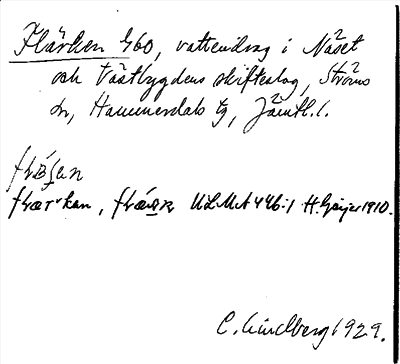 Flärken 460, vattendrag i Näset
och Västbygdens skifteslag, Ströms
sn, Hammerdals tg, Jämtl. l.
ULMA 446:1 H. Geijer 1910.
C. Lindberg 1929.